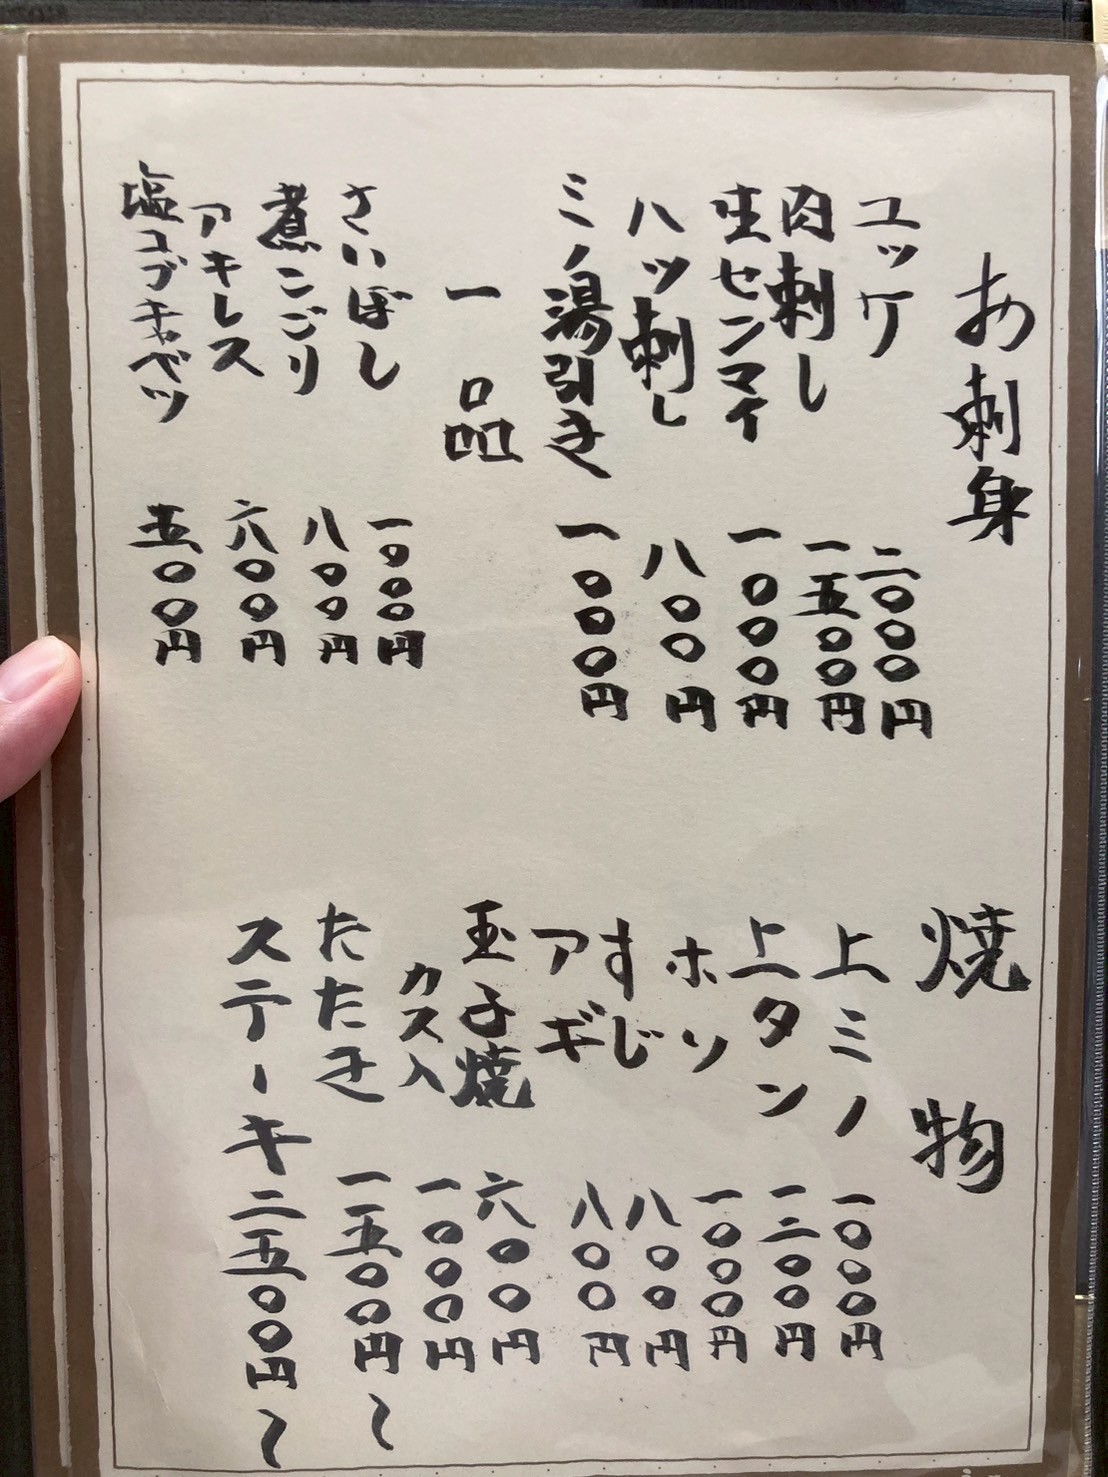 お刺身
ユッケ 二〇〇〇円
肉刺し 一五〇〇円
生センマイ 一〇〇〇円
ハツ刺し 八〇〇円
ミノ湯引き 一〇〇〇円
一品
さいぼし 一〇〇〇円
煮こごり 八〇〇円
アキレス 六〇〇円
塩コブキャベツ 五〇〇円
焼物
上ミノ 一〇〇〇円
上タン 一二〇〇円
ホソ 一〇〇〇円
すじ 八〇〇円
アギ 八〇〇円
玉子焼 六〇〇円
カス入 一〇〇〇円
たたき 一五〇〇円〜
ステーキ 二五〇〇円〜